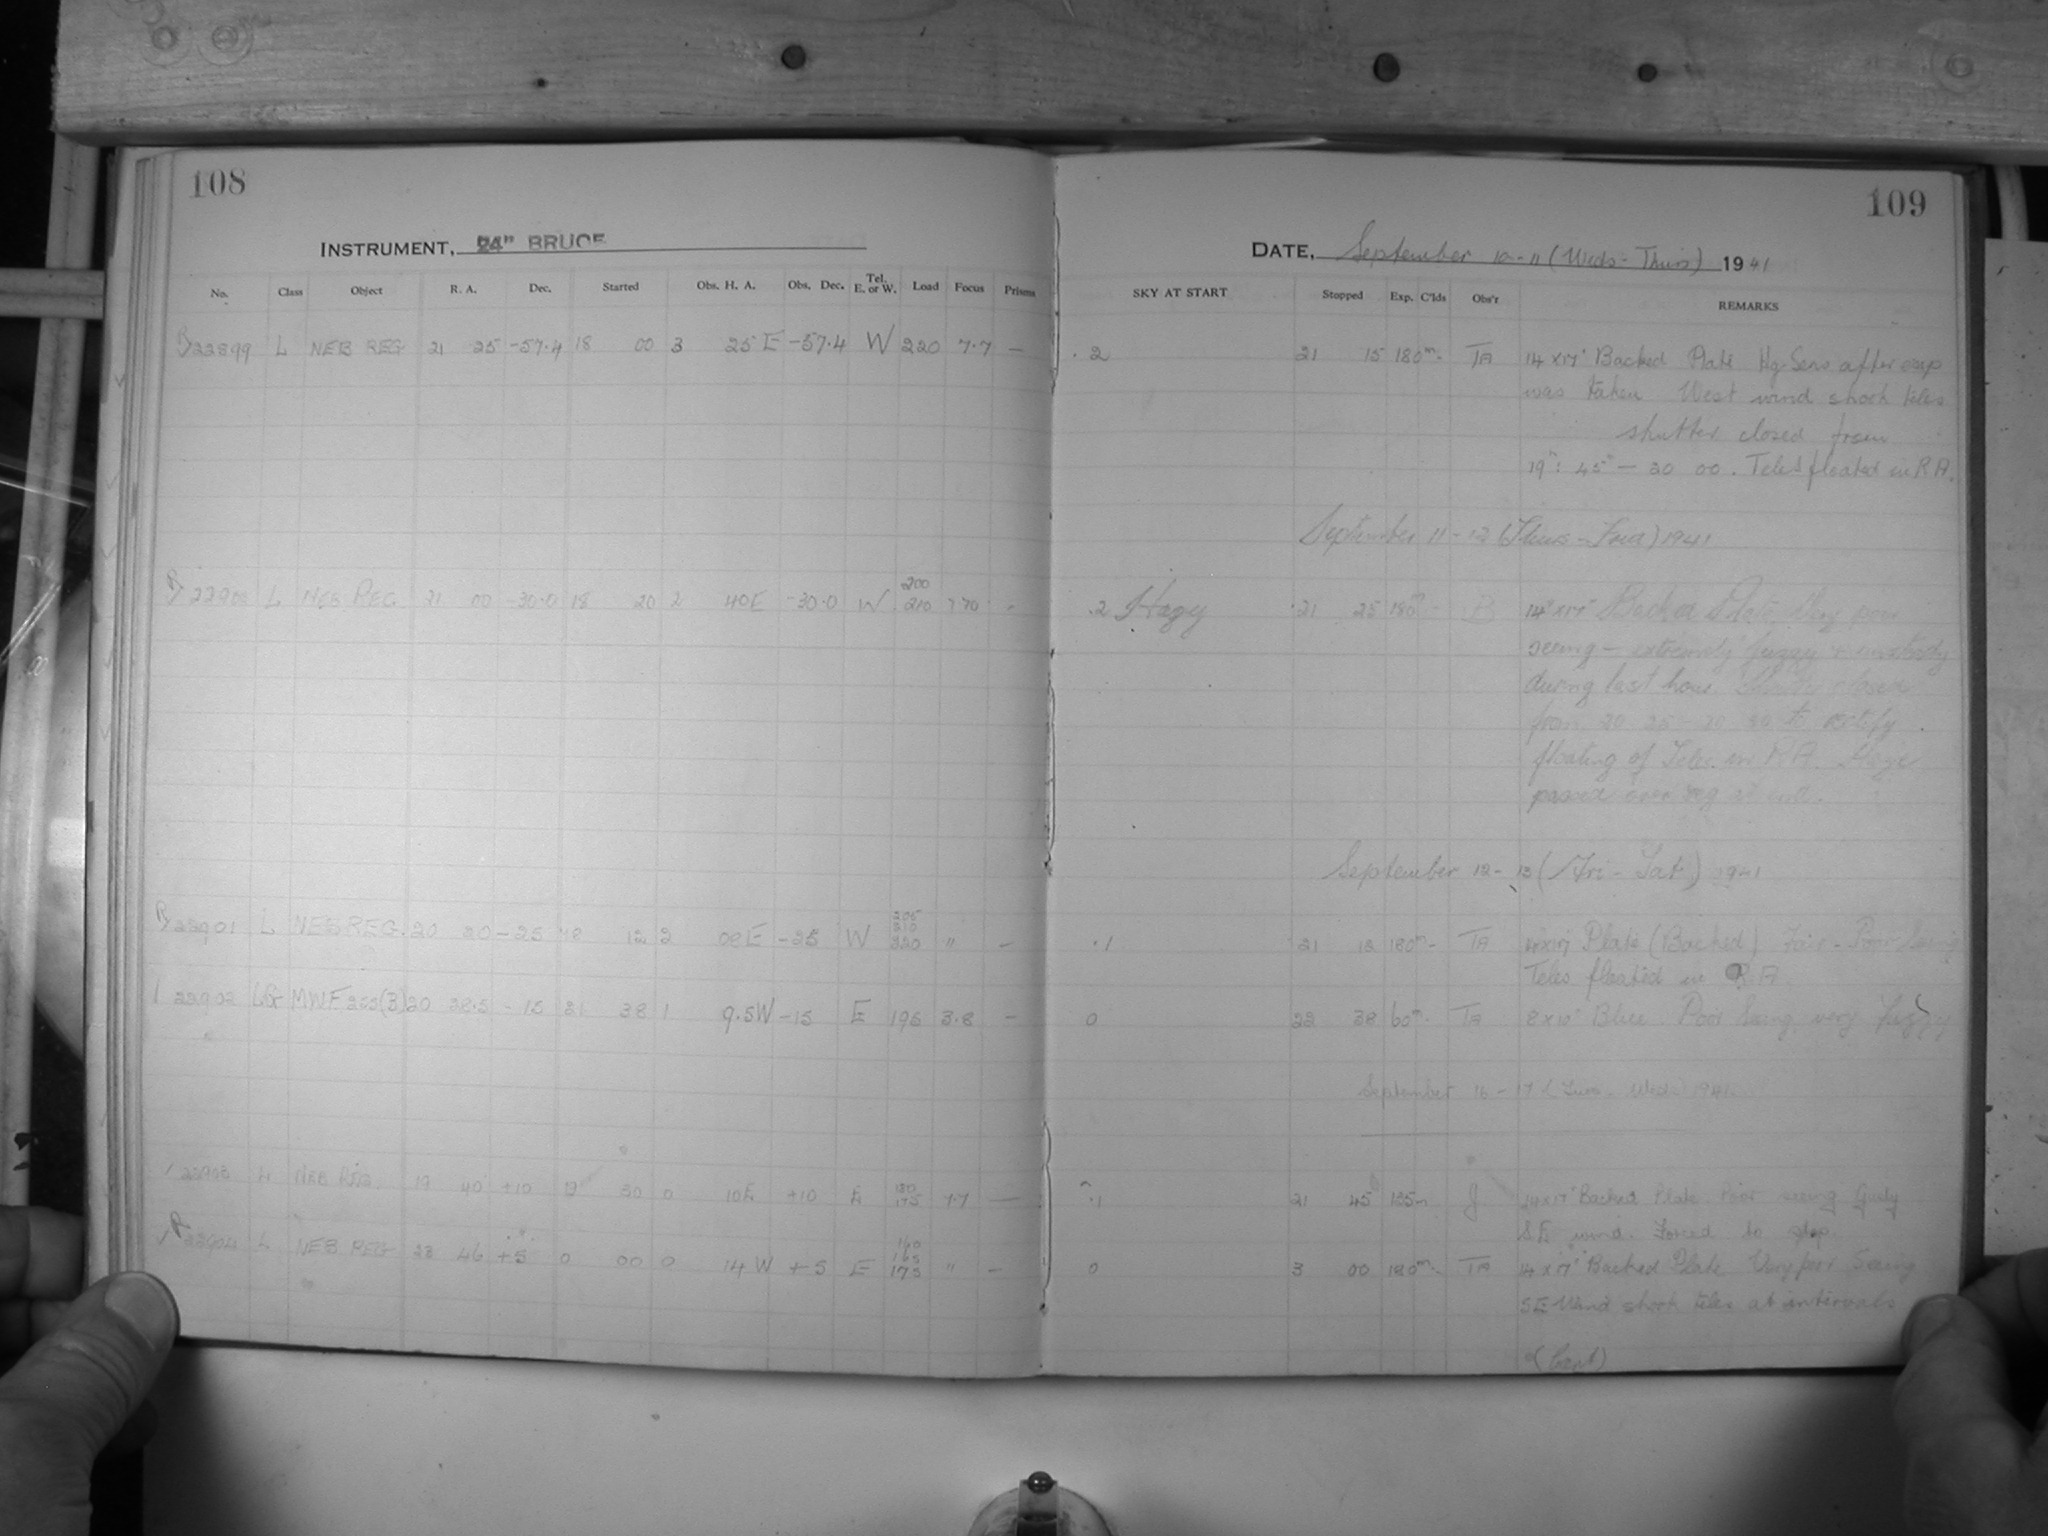 108
INSTRUMENT, 24" BRUCE
No. Class Object R. A. Dec. Started Obs. H. A. Obs. Dec. Tel. E. or W. Load Focus Prisms
22899 L NEB REG 21 25 -57.4 18 00 3 25 E -57.4 W 220 7.7 —
200
L NEB REG 21 00 -30.0 18 20 2 40E -30.0 W 210 7.70
205
210
22901 L NEB REG. 20 20 -25 18 12 2 08E -25 W 220 " —
22902 MWF 202(B) 20 38.5 -15 21 38 1 9.5W -15 E 195 3.8 —
180
22903 L NEB REG. 19 40 +10 50 0 10E +10 E 175 7.7 —
160
165
22904 L NEB REG 23 46 +5 0 00 0 14 W +5 E 175 " —
109
DATE, September 10-11 (Weds-Thurs) 1941
SKY AT START Stopped Exp. C'lds Obs'r REMARKS
.2 21 15 180m. TA 14 x 17" Backed Plate Hg Sens after exp
was taken West wind shook teles
shutter closed from
19h: 45m — 20 00. Teles floated in RA.
September 11-12 (Thurs-Frid) 1941
.2 Hazy 21 25 180m B 14" x 17" Backed Plate Very poor
seeing - extremely fuzzy + unsteady
during last hour closed
from 20 25 - 20 to rectify
floating of Teles. in RA.
passed over at end.
September 12-13 (Fri-Sat) 1941
.1 21 12 180m- TA 14x17 Plate (Backed) Fair - Poor Seeing
Teles floated in R.A.
0 22 38 60m. TA 8 x 10" Blue Poor Seeing very fuzzy
September 16-17 (Tues. Weds) 1941
.1 21 45 135m J 14 x 17" Backed Plate Poor seeing Gusty
SE wind. Forced to stop.
0 3 00 180m. TA 14 x 17" Backed Plate Very poor Seeing
SE Wind shook teles at intervals
(Cont)